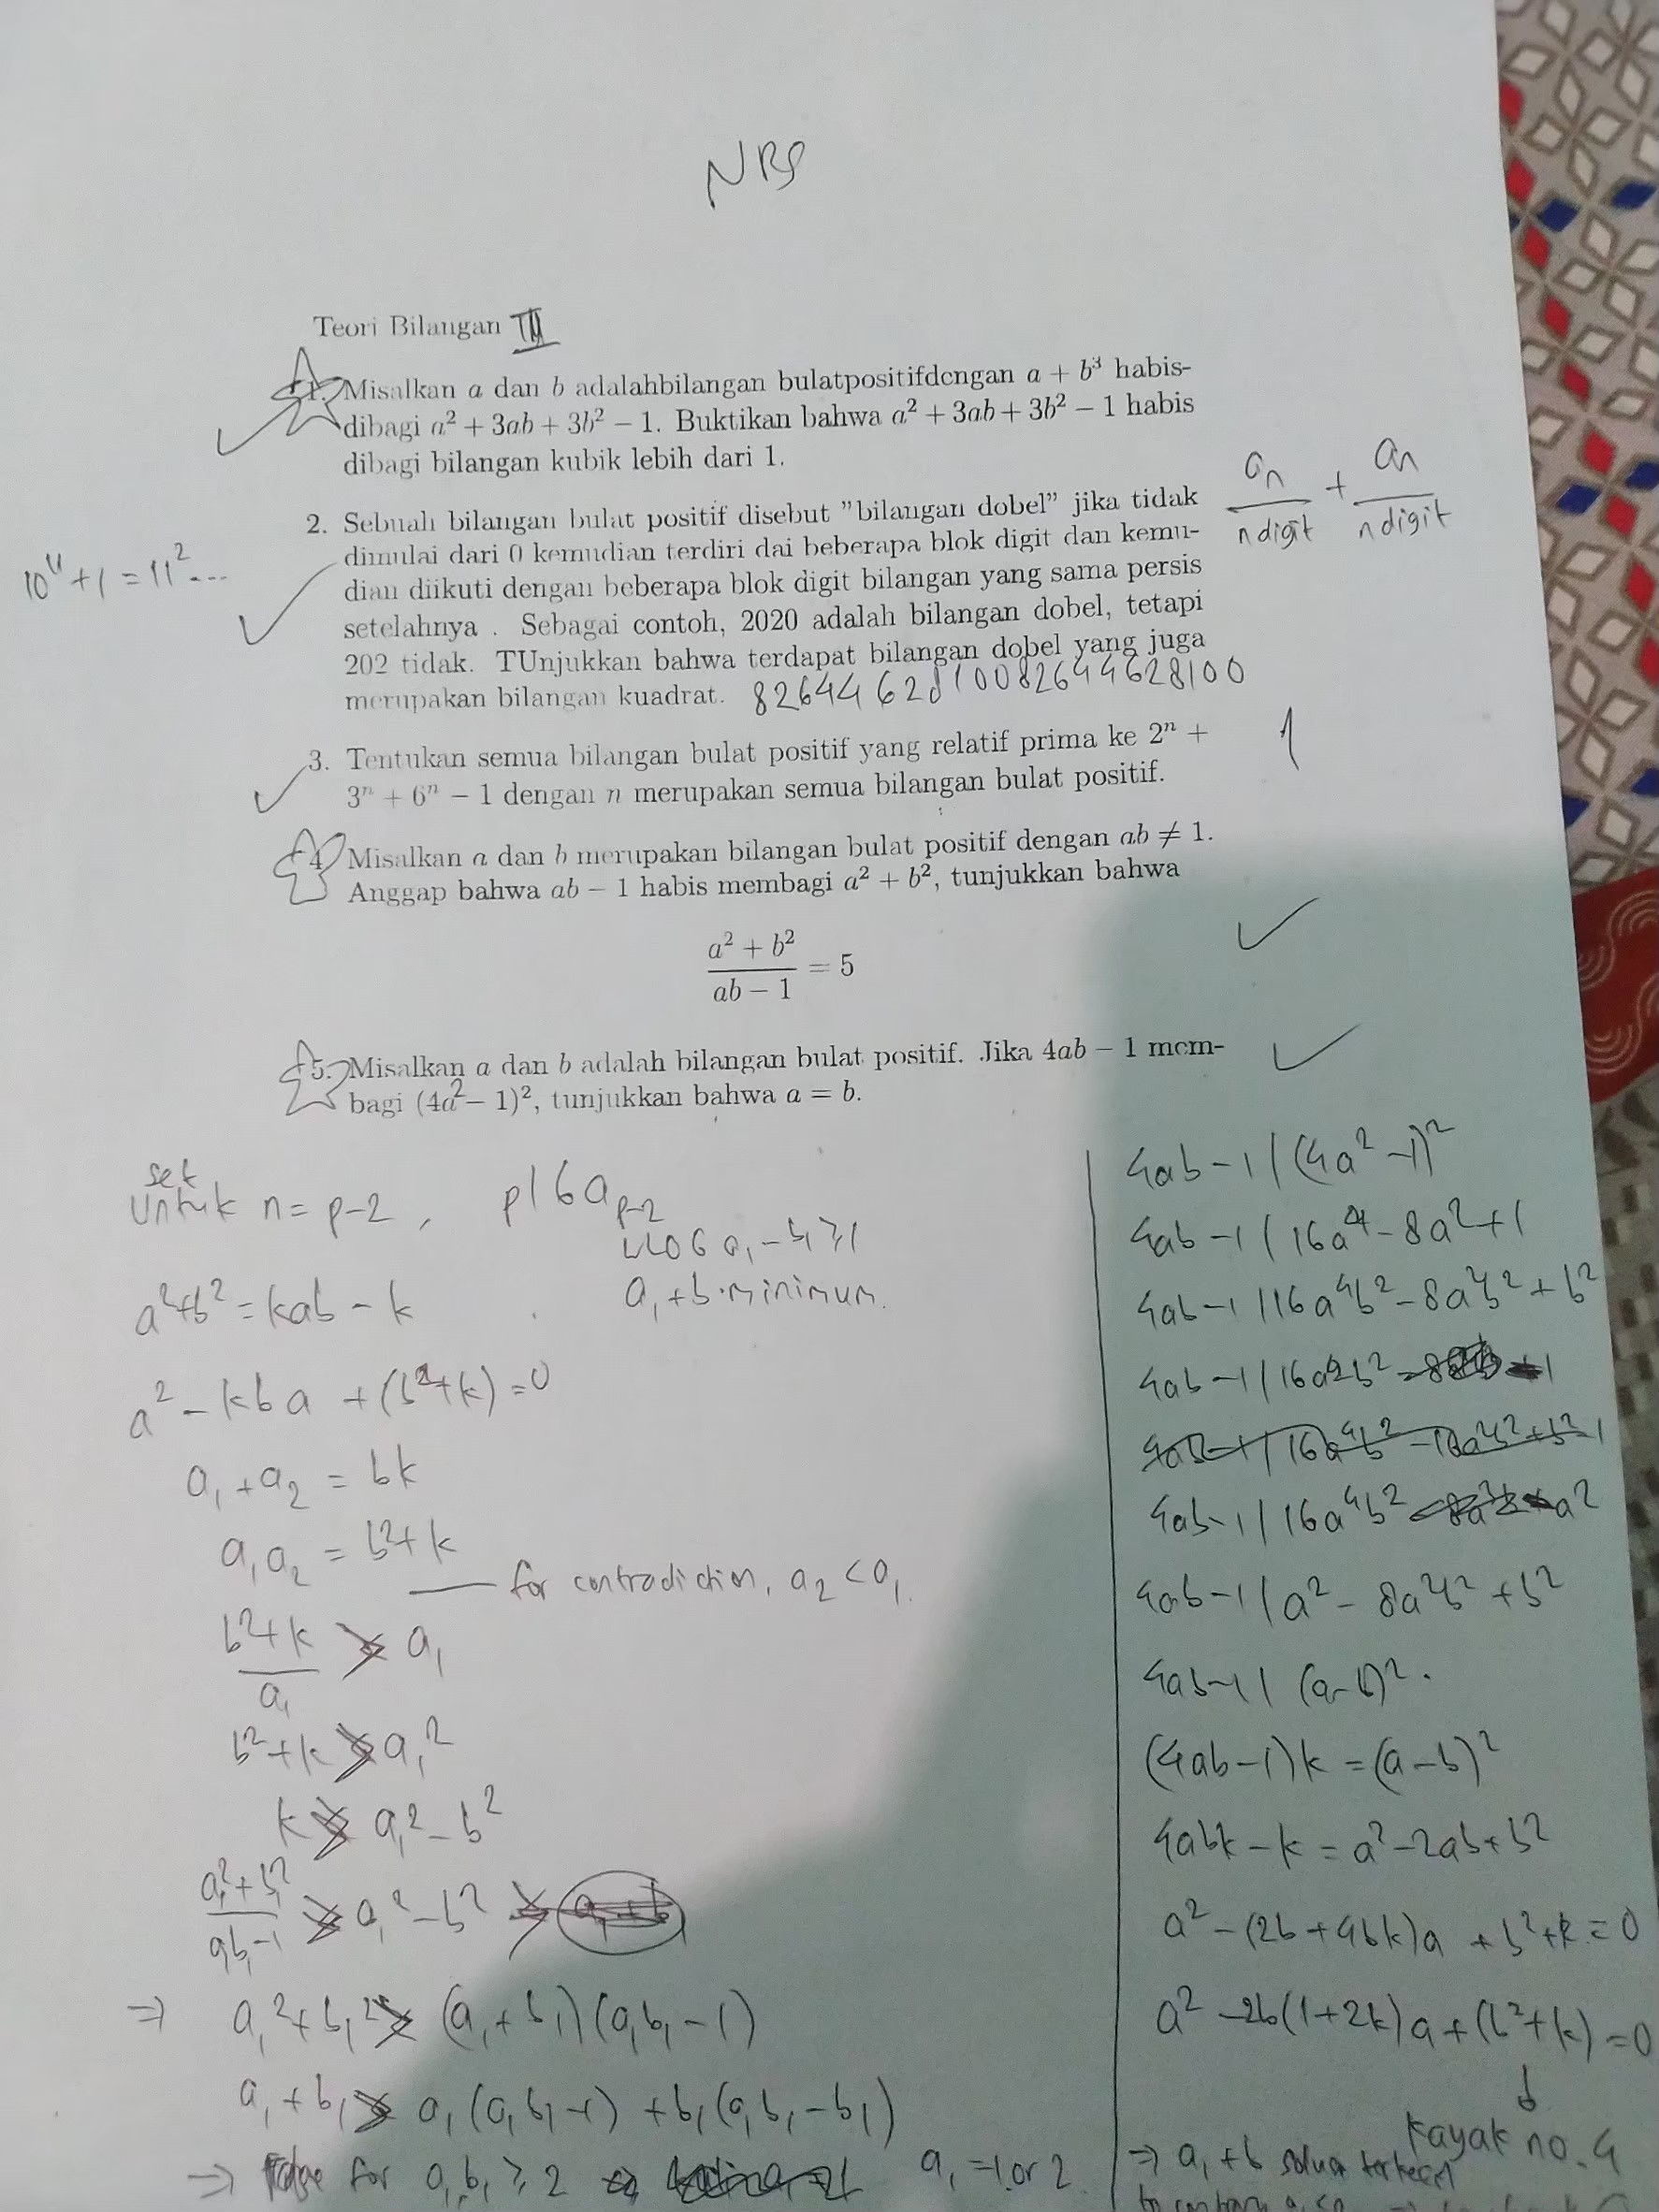 NBS
Teori Bilangan III
1. Misalkan a dan b adalahbilangan bulatpositifdengan a + b³ habis-
dibagi a² + 3ab + 3b² − 1. Buktikan bahwa a² + 3ab + 3b² − 1 habis
dibagi bilangan kubik lebih dari 1.
2. Sebuah bilangan bulat positif disebut "bilangan dobel" jika tidak
dimulai dari 0 kemudian terdiri dai beberapa blok digit dan kemu-
dian diikuti dengan beberapa blok digit bilangan yang sama persis
setelahnya . Sebagai contoh, 2020 adalah bilangan dobel, tetapi
202 tidak. TUnjukkan bahwa terdapat bilangan dobel yang juga
merupakan bilangan kuadrat. 8264462810082644628100
aₙ + aₙ
n digit n digit
10¹¹ + 1 = 11² ...
3. Tentukan semua bilangan bulat positif yang relatif prima ke 2ⁿ +
3ⁿ + 6ⁿ − 1 dengan n merupakan semua bilangan bulat positif.
1
4. Misalkan a dan b merupakan bilangan bulat positif dengan ab ≠ 1.
Anggap bahwa ab − 1 habis membagi a² + b², tunjukkan bahwa
a² + b²
ab − 1 = 5
5. Misalkan a dan b adalah bilangan bulat positif. Jika 4ab − 1 mem-
bagi (4a² − 1)², tunjukkan bahwa a = b.
set
Untuk n = p-2, p | 6a_{p-2}
WLOG a₁ - b₁ ≥ 1
a₁ + b minimum.
a² + b² = kab - k
a² - kba + (b² + k) = 0
a₁ + a₂ = bk
a₁a₂ = b² + k
for contradiction, a₂ < a₁.
b² + k
a₁ a₁
b² + k a₁²
k a₁² - b²
a₁² + b₁²
ab₁ - 1 a₁² - b²
⇒ a₁² + b₁² (a₁ + b₁)(a₁b₁ - 1)
a₁ + b₁ a₁(a₁b₁ - 1) + b₁(a₁b₁ - b₁)
⇒ for a₁b₁ ≥ 2 a₁ = 1 or 2
4ab - 1 | (4a² - 1)²
4ab - 1 | 16a⁴ - 8a² + 1
4ab - 1 | 16a⁴b² - 8a²b² + b²
4ab - 1 | 16a²b² - 1
4ab - 1 | 16a⁴b² - a²
4ab - 1 | a² - 8a²b² + b²
4ab - 1 | (a - b)².
(4ab - 1)k = (a - b)²
4abk - k = a² - 2ab + b²
a² - (2b + 4bk)a + b² + k = 0
a² - 2b(1 + 2k)a + (b² + k) = 0
kayak no. 4
⇒ a₁ + b solusi terkecil